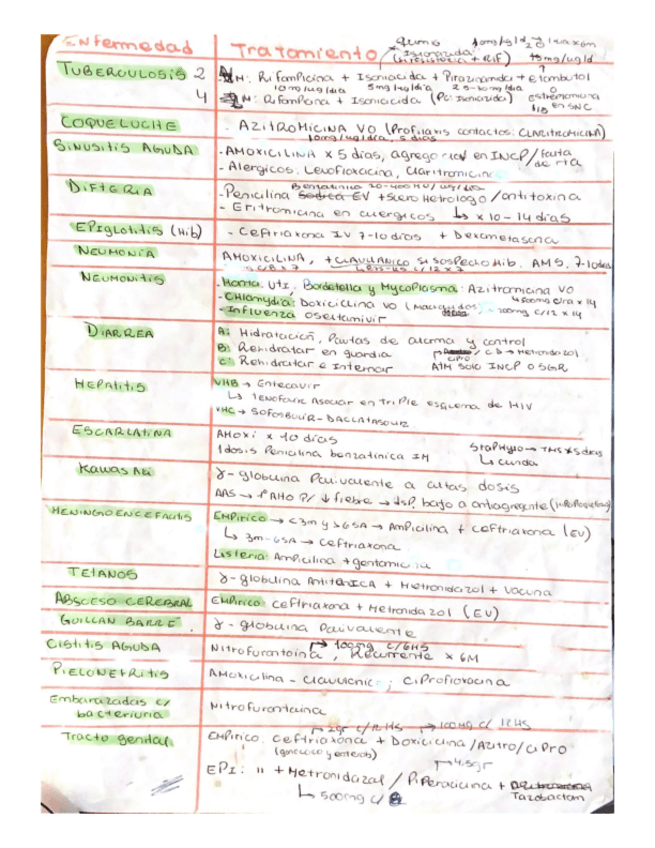 Enfermedad Tratamiento
Quimio 10mg/kg/d → 20 1 vez x 6m
Isoniacida 15mg/kg/d
TUBERCULOSIS 2 H: Rifampicina + Isoniacida + Pirazinamida + etambutol
10mg/kg/día 5mg/kg/día 25-30mg/día
4 H: Rifampicina + Isoniacida estreptomicina
en SNC
COQUELUCHE - AZITROMICINA VO (Profilaxis contactos: CLARITROMICINA)
10mg/kg/día, 5 días
SINUSITIS AGUDA - AMOXICILINA x 5 días, agrego clav en INCP / falta de rta
- Alergicos: Levofloxacina, Claritromicina
DIFTERIA Benzatinica
- Penicilina EV + suero Hetrologo / antitoxina
- Eritromicina en alergicos ↳ x 10-14 días
EPIGLOTITIS (Hib) - Ceftriaxona IV 7-10 días + Dexametasona
NEUMONIA AMOXICILINA, + CLAVULANICO si sospecho Hib. AMS. 7-10 días
NEUMONITIS - Hanta: UTI. Bordetella y Mycoplasma: Azitromicina VO
- CHlamydia: Doxiciclina VO (Macrolidos) 200mg c/12 x 14
- Influenza oseltamivir
DIARREA A: Hidratación, Pautas de alarma y control
B: Rehidratar en guardia CIPRO / c d → Metronidazol
C: Rehidratar e Internar ATM solo INCP o SGR
HEPATITIS VHB → Entecavir
↳ TENOFOVIR Asociar en Triple esquema de HIV
VHC → SOFOSBUVIR - DACLATASVIR
ESCARLATINA AMOXI x 10 días Staphylo → TMS x 5 días
1 dosis Penicilina benzatinica IM ↳ clinda
Kawasaki γ-globulina Polivalente a altas dosis
AAS → ↑ AHO P/ ↓ fiebre → dsp. bajo a antiagregante
MENINGOENCEFALITIS EMPIRICO → <3m y >65A → Ampicilina + ceftriaxona (EV)
↳ 3m-65A → ceftriaxona
Listeria: Ampicilina + gentamicina
TETANOS γ-globulina Antitetánica + Metronidazol + Vacuna
ABSCESO CEREBRAL EMPIRICO: ceftriaxona + Metronidazol (EV)
GUILLAN BARRÉ γ-globulina Polivalente
CISTITIS AGUDA Nitrofurantoina → 100mg c/6HS, Recurrente x 6M
PIELONEFRITIS Amoxicilina - Clavulanico; Ciprofloxacina
Embarazadas c/ bacteriuria Nitrofurantoina
→ 2gr c/12 HS → 100MG c/ 12HS
Tracto genital EMPIRICO. ceftriaxona + Doxiciclina / Azitro / CIPRO
(gonococo y enterob) → 4.5gr
EPI: " + Metronidazol / Piperacicina + Tazobactam
↳ 500mg c/ 8